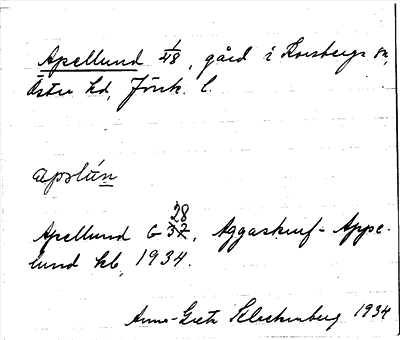 Apellund 1/48, gård i Korsberga sn,
Östra hd, Jönk. l.
apəlún
Apellund G 28 37, Aggaskruf-Appe-
lund hb, 1934.
Anna-Greta Kleckenberg 1934